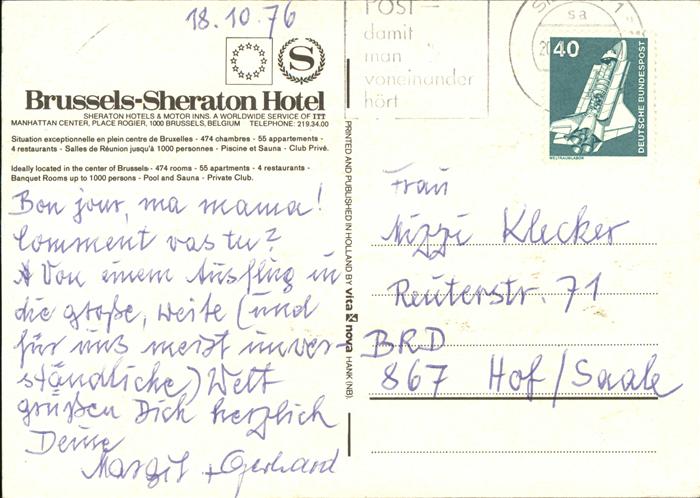 18.10.76
S
Brussels-Sheraton Hotel
SHERATON HOTELS & MOTOR INNS. A WORLDWIDE SERVICE OF ITT
MANHATTAN CENTER, PLACE ROGIER, 1000 BRUSSELS, BELGIUM TELEPHONE: 219.34.00
Situation exceptionnelle en plein centre de Bruxelles - 474 chambres - 55 appartements -
4 restaurants - Salles de Réunion jusqu'à 1000 personnes - Piscine et Sauna - Club Privé.
Ideally located in the center of Brussels - 474 rooms - 55 apartments - 4 restaurants -
Banquet Rooms up to 1000 persons - Pool and Sauna - Private Club.
Bon jour, ma mama!
Comment vas tu?
Von einem Ausflug in
die große, weite (und
für uns meist unver-
ständliche) Welt
grüßen Dich herzlich
Deine
Margit + Gerhard
PRINTED AND PUBLISHED IN HOLLAND BY vita nova HANK (NB)
POST —
damit
man
voneinander
hört
sa
40
DEUTSCHE BUNDESPOST
WELTRAUMLABOR
Frau
Mizzi Klecker
Reuterstr. 71
BRD
867 Hof/Saale